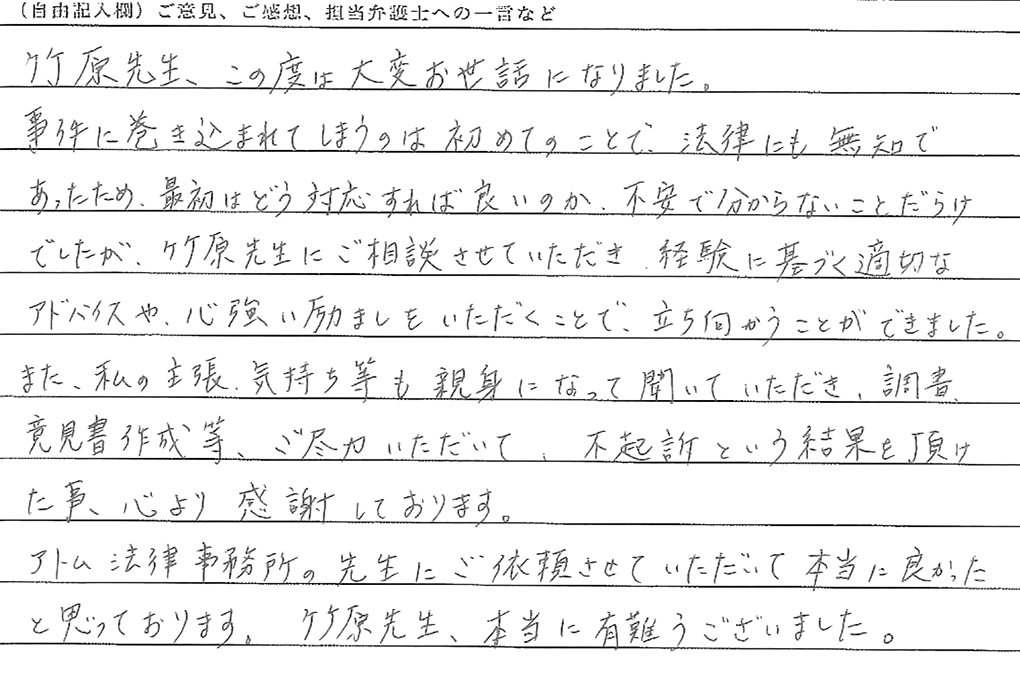 （自由記入欄）ご意見、ご感想、担当弁護士への一言など
竹原先生、この度は大変お世話になりました。
事件に巻き込まれてしまうのは初めてのことで、法律にも無知で
あったため、最初はどう対応すれば良いのか、不安で分からないことだらけ
でしたが、竹原先生にご相談させていただき、経験に基づく適切な
アドバイスや、心強い励ましをいただくことで、立ち向かうことができました。
また、私の主張、気持ち等も親身になって聞いていただき、調書、
意見書作成等、ご尽力いただいて、不起訴という結果を頂け
た事、心より感謝しております。
アトム法律事務所の先生にご依頼させていただいて本当に良かった
と思っております。竹原先生、本当に有難うございました。